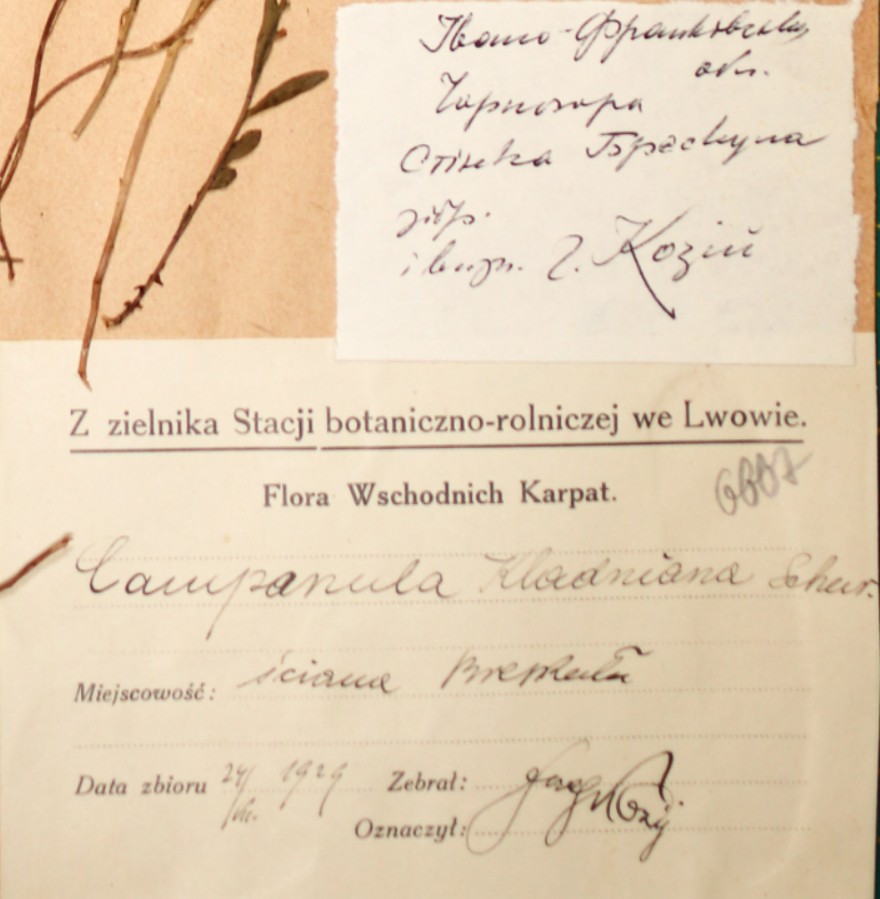 Івано-Франківська
обл.
Чорногора
Стінка Брескула
зібр.
і визн. Г. Козій
Z zielnika Stacji botaniczno-rolniczej we Lwowie.
Flora Wschodnich Karpat.
6687
Campanula Kladniana Schur.
Miejscowość: ściana Breskuła
Data zbioru 24/ 1929 Zebrał:
Oznaczył: